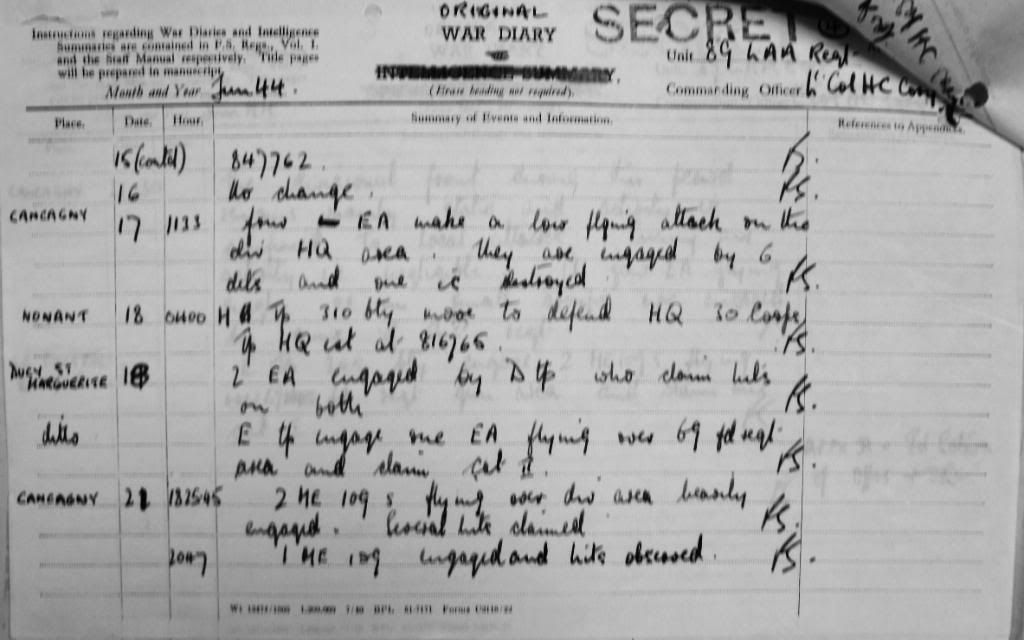 ORIGINAL
WAR DIARY
SECRET
Instructions regarding War Diaries and Intelligence
Summaries are contained in F.S. Regs., Vol. I.
and the Staff Manual respectively. Title pages
will be prepared in manuscript.
INTELLIGENCE SUMMARY.
(Erase heading not required).
Month and Year Jun 44.
Unit 89 LAA Regt
Commanding Officer Lt Col HC
Place. Date. Hour. Summary of Events and Information. References to Appendices.
15 (contd) 847762.
16 No change.
CANCAGNY 17 1133 four EA make a low flying attack on the
div HQ area. They are engaged by 6
dets and one is destroyed
NONANT 18 0400 H Tp 310 bty move to defend HQ 30 Corps
Tp HQ est at 816765.
DUCY ST
MARGUERITE 18 2 EA engaged by D Tp who claim hits
on both
ditto E Tp engage one EA flying over 69 fd regt
area and claim Cat II.
CANCAGNY 21 182545 2 ME 109 s flying over div area heavily
engaged. Several hits claimed
2047 1 ME 109 engaged and hits observed.